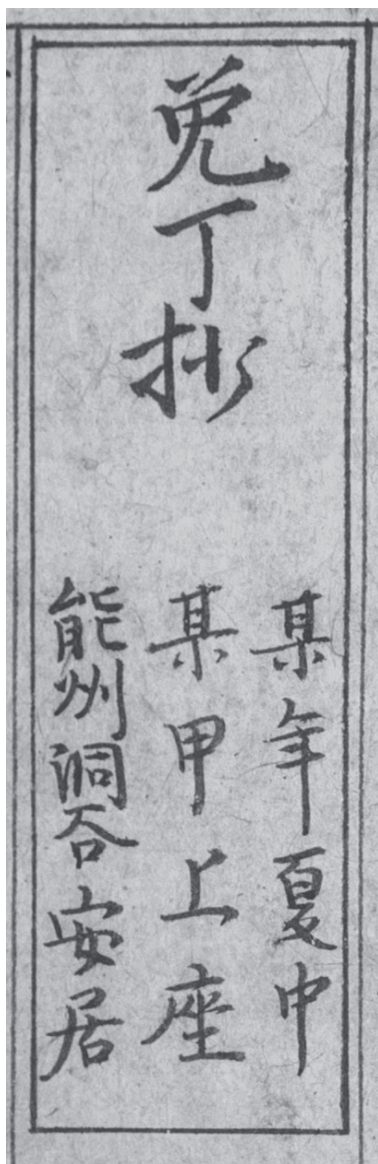 免丁抄
某年夏中
某甲上座
能州洞谷安居